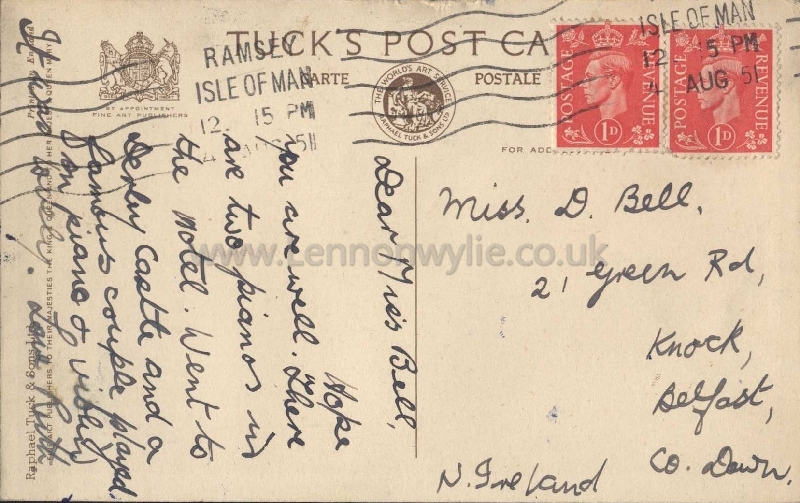 TUCK'S POST CA
CARTE
POSTALE
BY APPOINTMENT
FINE ART PUBLISHERS
THE WORLD'S ART SERVICE
RAPHAEL TUCK & SONS LTD
FOR ADD
RAMSEY
ISLE OF MAN
12. 15 PM
4 AUG 1951
ISLE OF MAN
12 15 PM
4 AUG 51
POSTAGE REVENUE
1D
POSTAGE REVENUE
1D
Dear Miss Bell,
Hope
you are well. There
are two pianos in
the Hotel. Went to
Derby Castle and a
famous couple played
on piano & violin
Love Ruth
Miss. D. Bell,
21 Green Rd,
Knock,
Belfast,
Co. Down.
N. Ireland
Raphael Tuck & Sons Ltd.
FINE ART PUBLISHERS TO THEIR MAJESTIES THE KING & QUEEN AND TO HER MAJESTY QUEEN MARY
www.Lennonwylie.co.uk